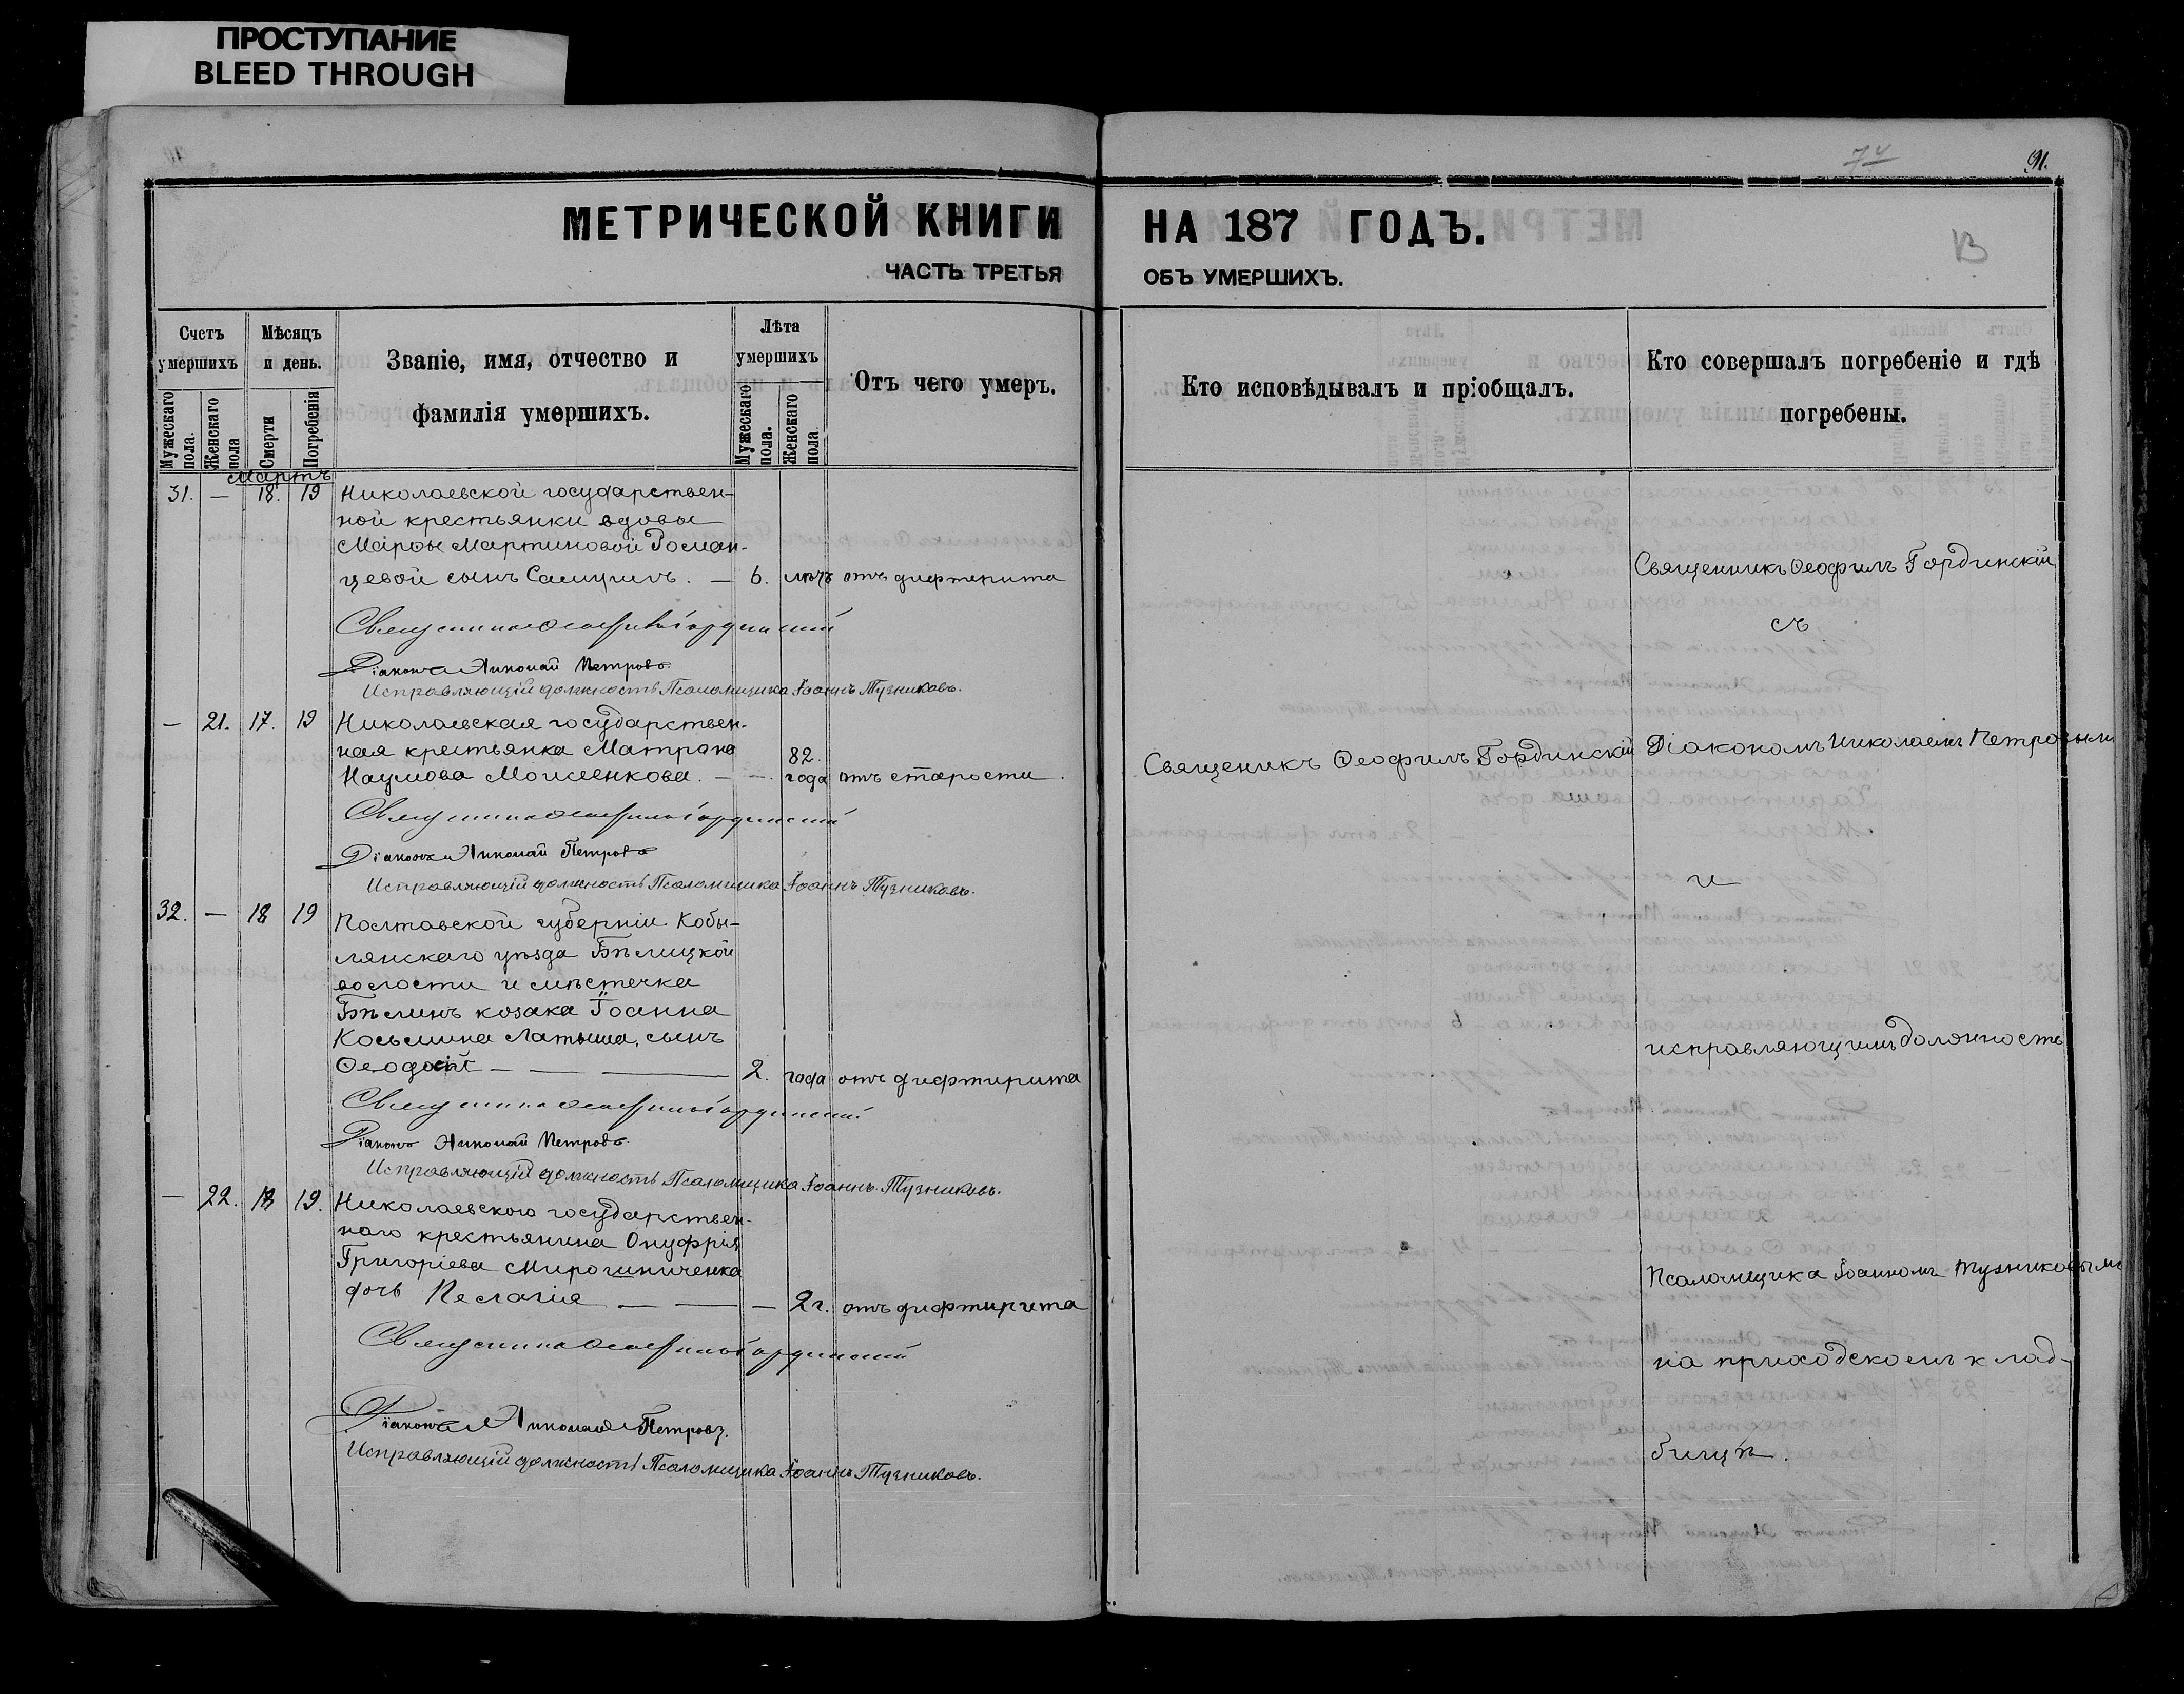 ПРОСТУПАНИЕ
BLEED THROUGH
74
91.
МЕТРИЧЕСКОЙ КНИГИ НА 187 ГОДЪ.
ЧАСТЬ ТРЕТЬЯ ОБЪ УМЕРШИХЪ.
Счетъ умершихъ
Мужескаго пола.
Женскаго пола
Мѣсяцъ и день.
Смерти
Погребенія
Званіе, имя, отчество и
фамилія умершихъ.
Лѣта умершихъ
Мужескаго пола.
Женскаго пола
Отъ чего умеръ.
Кто исповѣдывалъ и пріобщалъ.
Кто совершалъ погребеніе и гдѣ
погребены.
Мартъ
31. — 18. 19 Николаевской государствен-
ной крестьянки вдовы
Марфы Мартиновой Роман-
цевой сынъ Самуилъ. — 6. мцъ отъ дифтерита
Священникъ Ѳеофилъ Гординскій
Діаконъ Николай Петровъ.
Исправляющій должность Псаломщика Іоаннъ Тузниковъ.
— 21. 17. 19 Николаевская государствен-
ная крестьянка Матрона 82.
Наумова Моисеенкова. — — года отъ старости.
Священникъ Ѳеофилъ Гординскій
Діаконъ Николай Петровъ
Исправляющій должность Псаломщика Іоаннъ Тузниковъ.
32. — 18 19 Полтавской губерніи Кобы-
лянскаго уѣзда Бѣлицкой
волости и мѣстечка
Бѣликъ козака Іоанна
Косьмина Латыша, сынъ
Ѳеодосій — — 2. года отъ дифтирита
Священникъ Ѳеофилъ Гординскій
Діаконъ Николай Петровъ.
Исправляющій должность Псаломщика Іоаннъ Тузниковъ.
— 22. 18 19. Николаевского государствен-
наго крестьянина Онуфрія
Григоріева Мирошниченка
дочь Пелагія — — — 2 г. отъ дифтирита
Священникъ Ѳеофилъ Гординскій
Діаконъ Николай Петровъ.
Исправляющій должность Псаломщика Іоаннъ Тузниковъ.
Священикъ Ѳеофилъ Гординскій
Священникъ Ѳеофилъ Гординскій
съ
Діакономъ Николаемъ Петровымъ
и
исправляющимъ должность
Псаломщика Іоанномъ Тузниковымъ
на приходскомъ клад-
бищѣ.